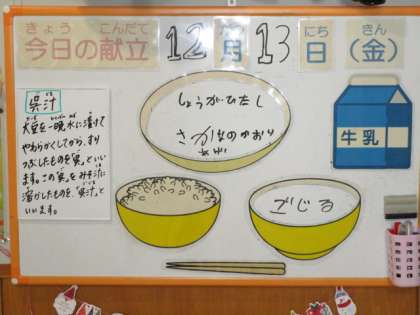 きょう こんだて
今日の献立
12月13日(金)
にち きん
呉汁
大豆を一晩水に漬けて
やわらかくしてから、すり
つぶしたものを「呉」といい
ます。この「呉」をみそ汁に
溶かしたものを、「呉汁」と
いいます。
しょうがひたし
さかなのかおり
あげ
ごじる
牛乳